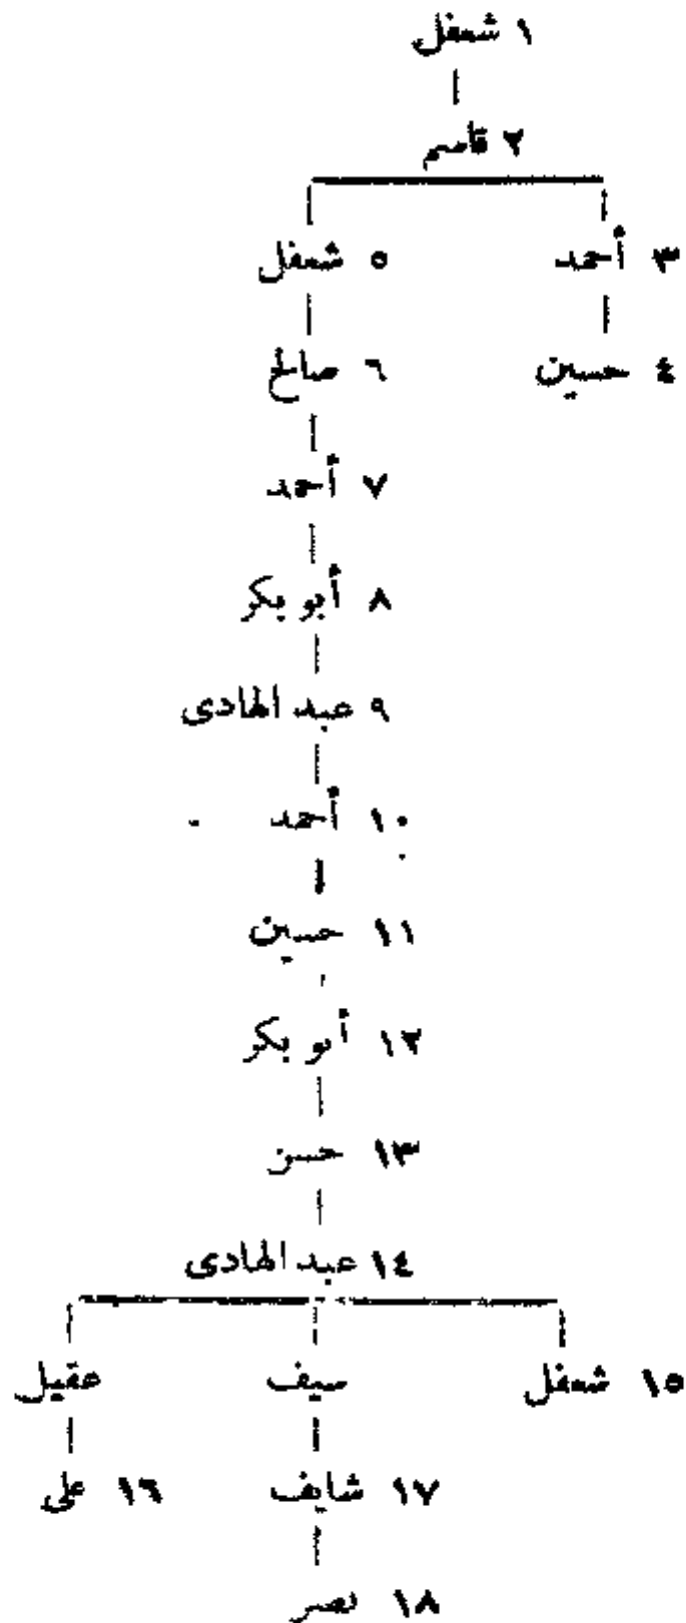 ١ شعفل
٢ قاسم
٣ أحمد ٥ شعفل
٤ حسين ٦ صالح
٧ أحمد
٨ أبو بكر
٩ عبد الهادى
١٠ أحمد
١١ حسين
١٢ أبو بكر
١٣ حسن
١٤ عبد الهادى
١٥ شعفل سيف عقيل
١٧ شايف ١٦ على
١٨ نصر